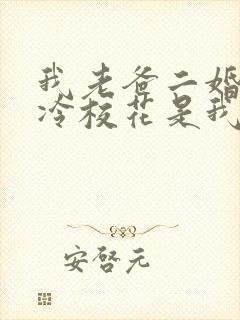 我老爸二婚
冷校花是我
安启元